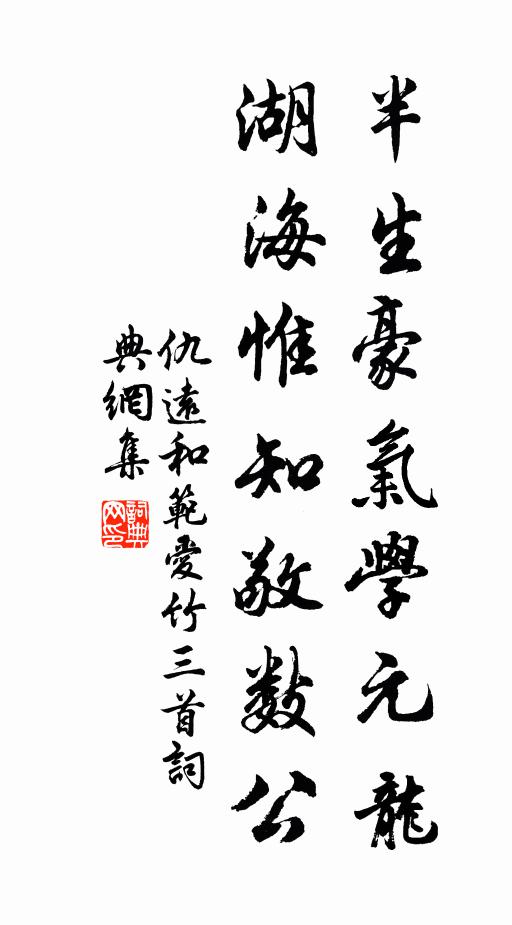 半生豪氣學元龍
湖海惟知敬数公
仇遠和範愛竹三首詞
典網集
詞典
网印